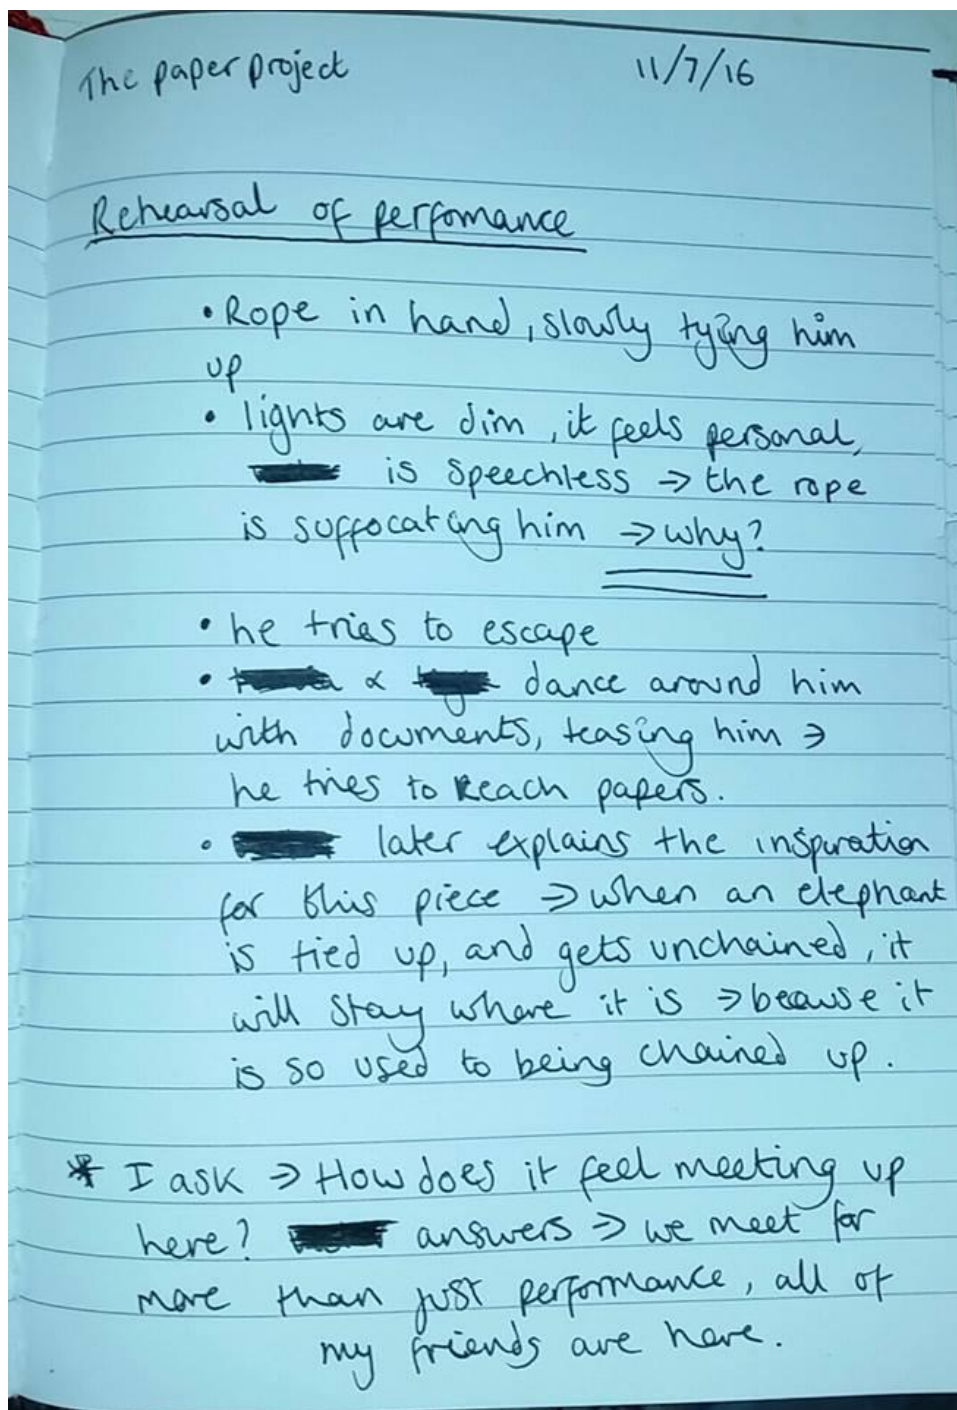 The paper project 11/7/16
Rehearsal of perfomance
• Rope in hand, slowly tying him
up
• lights are dim, it feels personal,
is speechless → the rope
is suffocating him → why?
• he tries to escape
• & dance around him
with documents, teasing him →
he tries to reach papers.
• later explains the inspiration
for this piece → when an elephant
is tied up, and gets unchained, it
will stay where it is → because it
is so used to being chained up.
* I ask → How does it feel meeting up
here? answers → we meet for
more than just performance, all of
my friends are here.